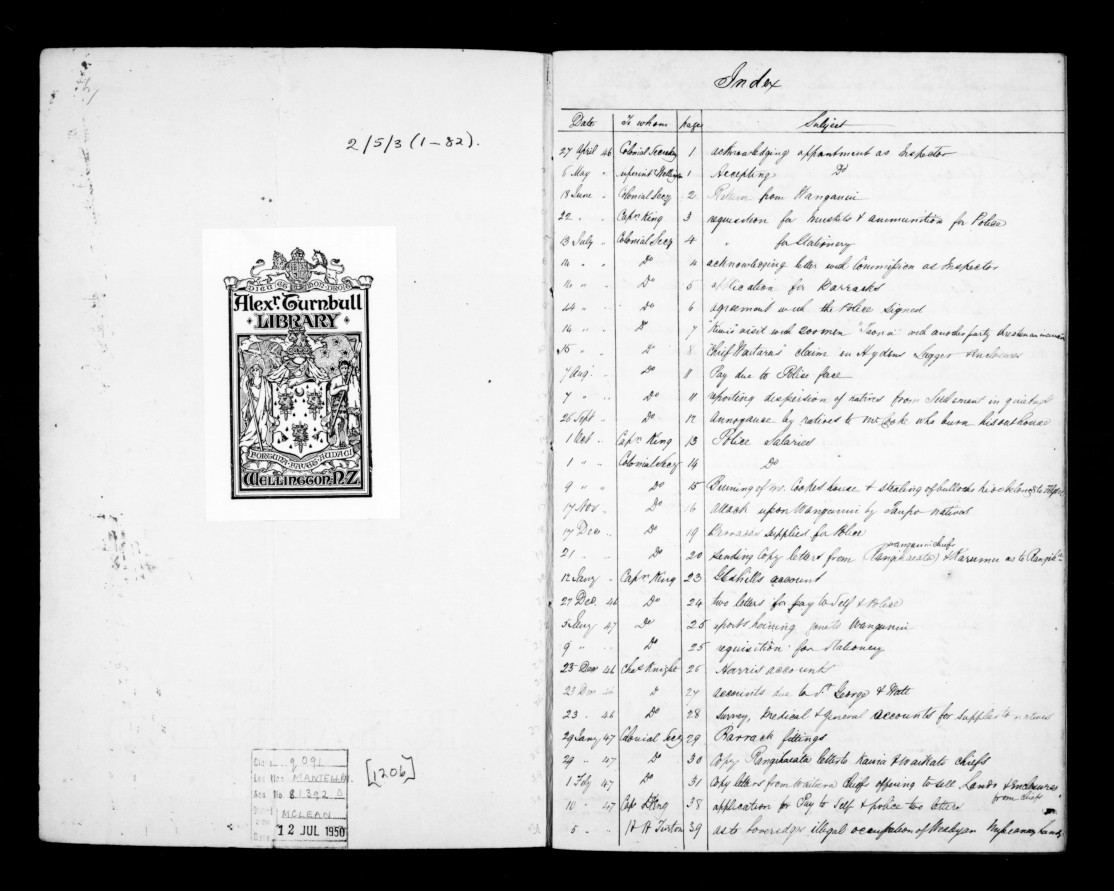 2/5/3 (1–82).
DIEU ET MON DROIT
Alexr. Turnbull
LIBRARY
FORTUNA FAVET AUDACI
WELLINGTON. N.Z.
9091
MANTELL
81392
MCLEAN
12 JUL 1950
[1206]
Index
Date To whom pages Subject
27 April 46 Colonial Secrety 1 acknowledging appointment as Inspector
6 May " 1 Accepting Do
18 June " Colonial Secy 2 Return from Wanganui
22 " " Capn King 3 requisition for muskets & ammunition for Police
13 July " Colonial Secy 4 " for Stationery
14 " " Do 4 acknowledging letter with Commission as Inspector
" " Do 5 application for Barracks
" " Do 6 agreement with the Police Signed
14 " " Do 7 visit with 200 men with another party
15 " " Do 8 Chief claim on enclosures
7 Aug " Do 11 Pay due to Police force
7 " " Do 11 reporting dispersion of natives from Settlement in
26 Sept " Do 12 annoyance by natives to Mr Cooke who burn his outhouse
1 Oct " Capn King 13 Police Salaries
1 " " Colonial Secy 14 Do
9 " " Do 15 Burning of Mr. Cookes house & stealing of bullocks
17 Nov " Do 16 attack upon Wanganui by Taupo natives
17 Decr " Do 19 supplies for Police
wanganui chiefs
21 " " Do 20 sending Copy letters from (Rangihaeata) & as to
12 Jany " Capn King 23 account
27 Dec. 46 Do 24 two letters for pay to Self & Police
5 Jany 47 Do 25 Wanganui
9 " " Do 25 requisition for Stationery
23 Decr 46 Chas Knight 26 Harris account
23 Decr 46 Do 27 accounts due to St George & Watt
23 " 46 Do 28 Survey, medical & general accounts for supplies to natives
29 Jany 47 Colonial Secy 29 Barrack fittings
29 " 47 Do 30 Copy Rangihaeata letter to Kawia & Waikato chiefs
1 Feby 47 Do 31 Copy letters from Waitara Chiefs offering to sell Lands & enclosures
from chiefs
10 " 47 Capn King 38 application for Pay to Self & police two letters
5 " " 39 as to illegal occupation of Wesleyan